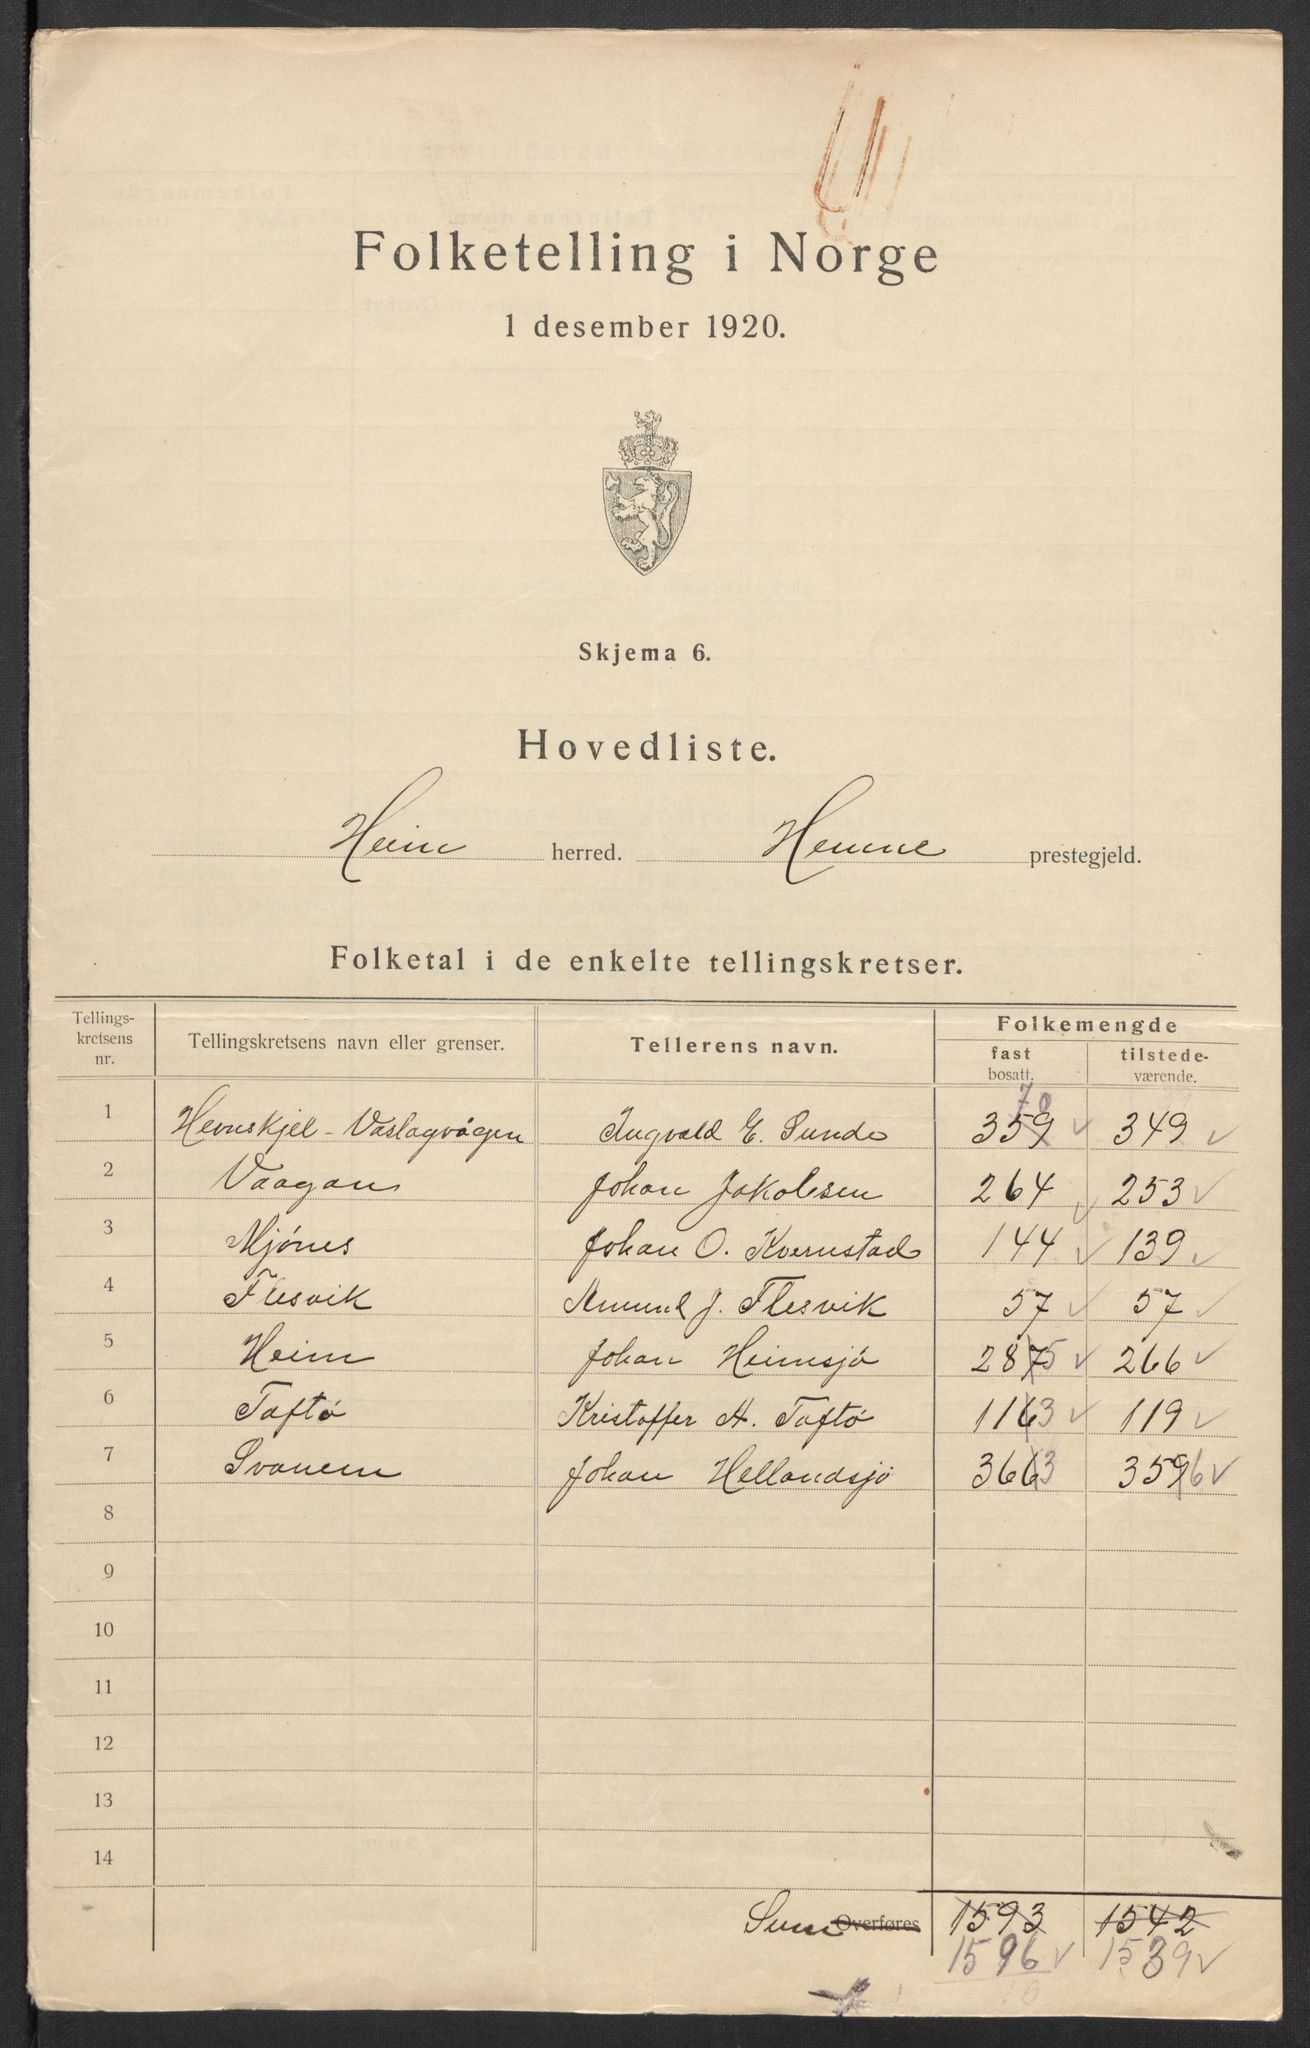 Folketelling i Norge
1 desember 1920.
Skjema 6.
Hovedliste.
Heim herred. Hemne prestegjeld.
Folketal i de enkelte tellingskretser.
Tellings-
kretsens
nr.
Tellingskretsens navn eller grenser.
Tellerens navn.
Folkemengde
fast
bosatt.
tilstede-
værende.
70
1 Hevnskjel - Vaslagvågen Ingvald E. Sunde 359 ✓ 349 ✓
2 Vaagan Johan Jakobsen 264 ✓ 253 ✓
3 Mjønes Johan O. Kvernstad 144 ✓ 139 ✓
4 Flesvik Amund J. Flesvik 57 ✓ 57 ✓
5 Heim Johan Heimsjø 2875 ✓ 266 ✓
6 Taftø Kristoffer A. Taftø 1163 ✓ 119 ✓
7 Svanem Johan Hellandsjø 3663 3596 ✓
8
9
10
11
12
13
14
Sum Overføres 1593 1542
1596 ✓ 1539 ✓
10